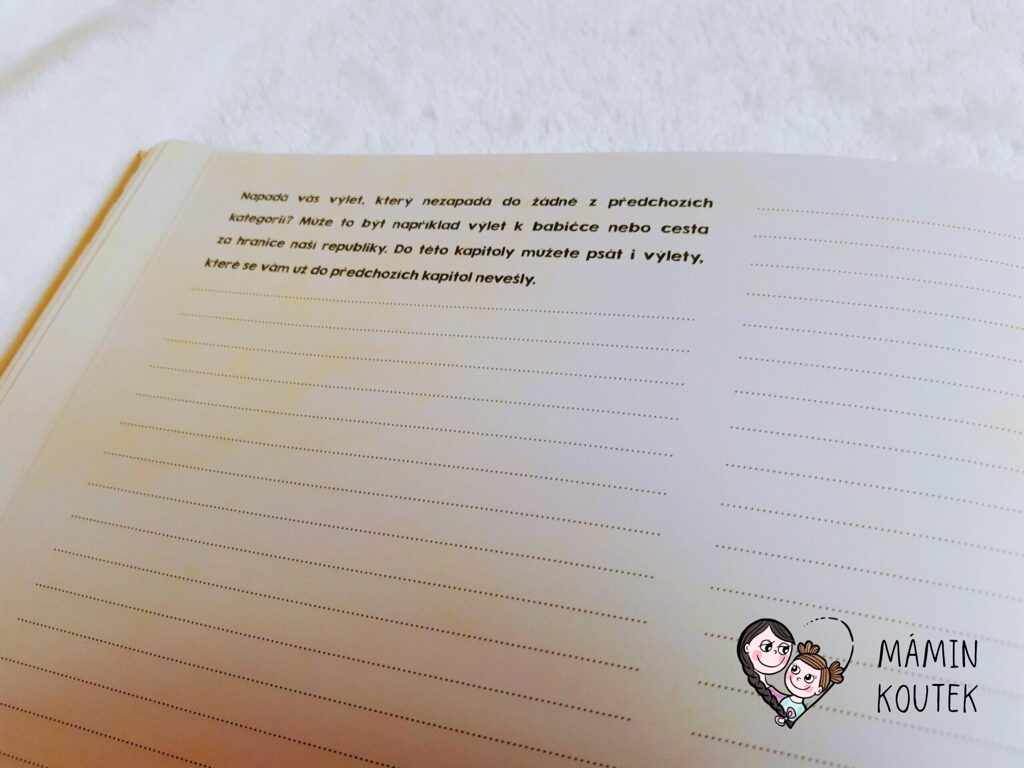 Napadá vás výlet, který nezapadá do žádné z předchozích
kategorií? Může to být například výlet k babičce nebo cesta
za hranice naší republiky. Do této kapitoly můžete psát i výlety,
které se vám už do předchozích kapitol nevešly.
MÁMIN
KOUTEK